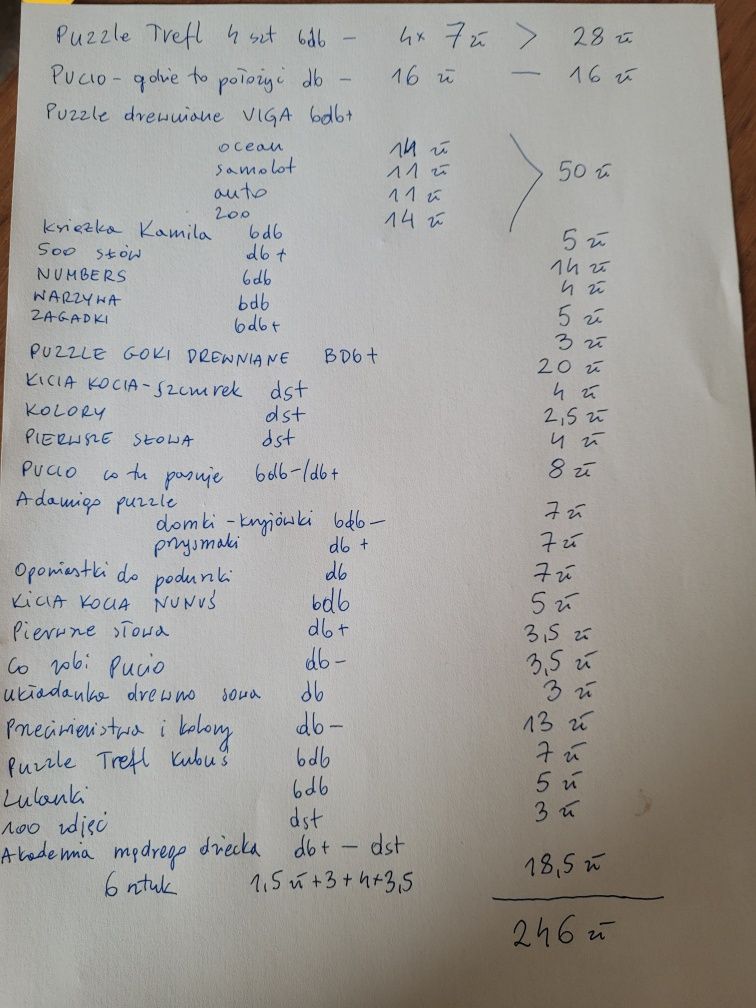 Puzzle Trefl 4 szt bdb - 4x 7 zł > 28 zł
Pucio - gdzie to położyć db - 16 zł - 16 zł
Puzzle drewniane VIGA bdb+
ocean 14 zł
samolot 11 zł 50 zł
auto 11 zł
zoo 14 zł
Książka Kamila bdb 5 zł
500 słów db + 14 zł
NUMBERS bdb 4 zł
WARZYWA bdb 5 zł
ZAGADKI bdb+ 3 zł
PUZZLE GOKI DREWNIANE BDB+ 20 zł
KICIA KOCIA - szczurek dst 4 zł
KOLORY dst 2,5 zł
PIERWSZE SŁOWA dst 4 zł
PUCIO co tu pasuje bdb-/db+ 8 zł
Adamigo puzzle
domki - kryjówki bdb- 7 zł
przysmaki db + 7 zł
Opowiastki do poduszki db 7 zł
KICIA KOCIA NUNUŚ bdb 5 zł
Pierwsze słowa db+ 3,5 zł
Co robi Pucio db- 3,5 zł
układanka drewno sowa db 3 zł
Przeciwieństwa i kolory db- 13 zł
Puzzle Trefl Kubuś bdb 7 zł
Lulanki bdb 5 zł
100 zdjęć dst 3 zł
Akademia mądrego dziecka db+ - dst
6 sztuk 1,5 zł+3+4+3,5 18,5 zł
246 zł